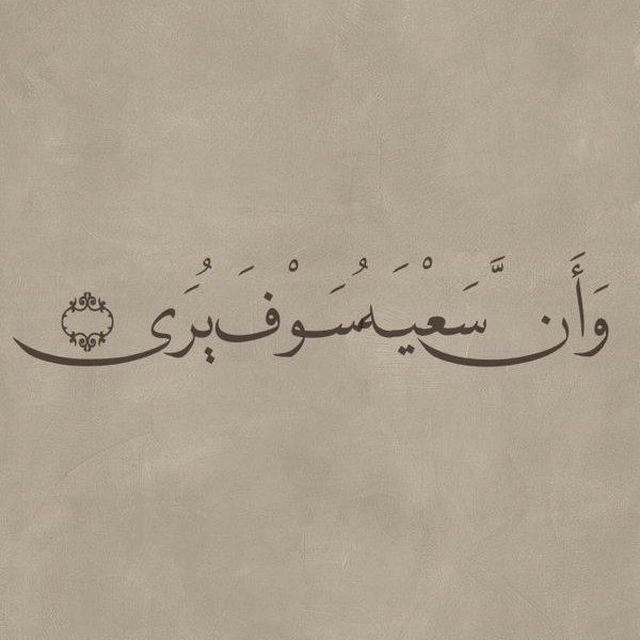 وَأَنَّ سَعْيَهُ سَوْفَ يُرَى